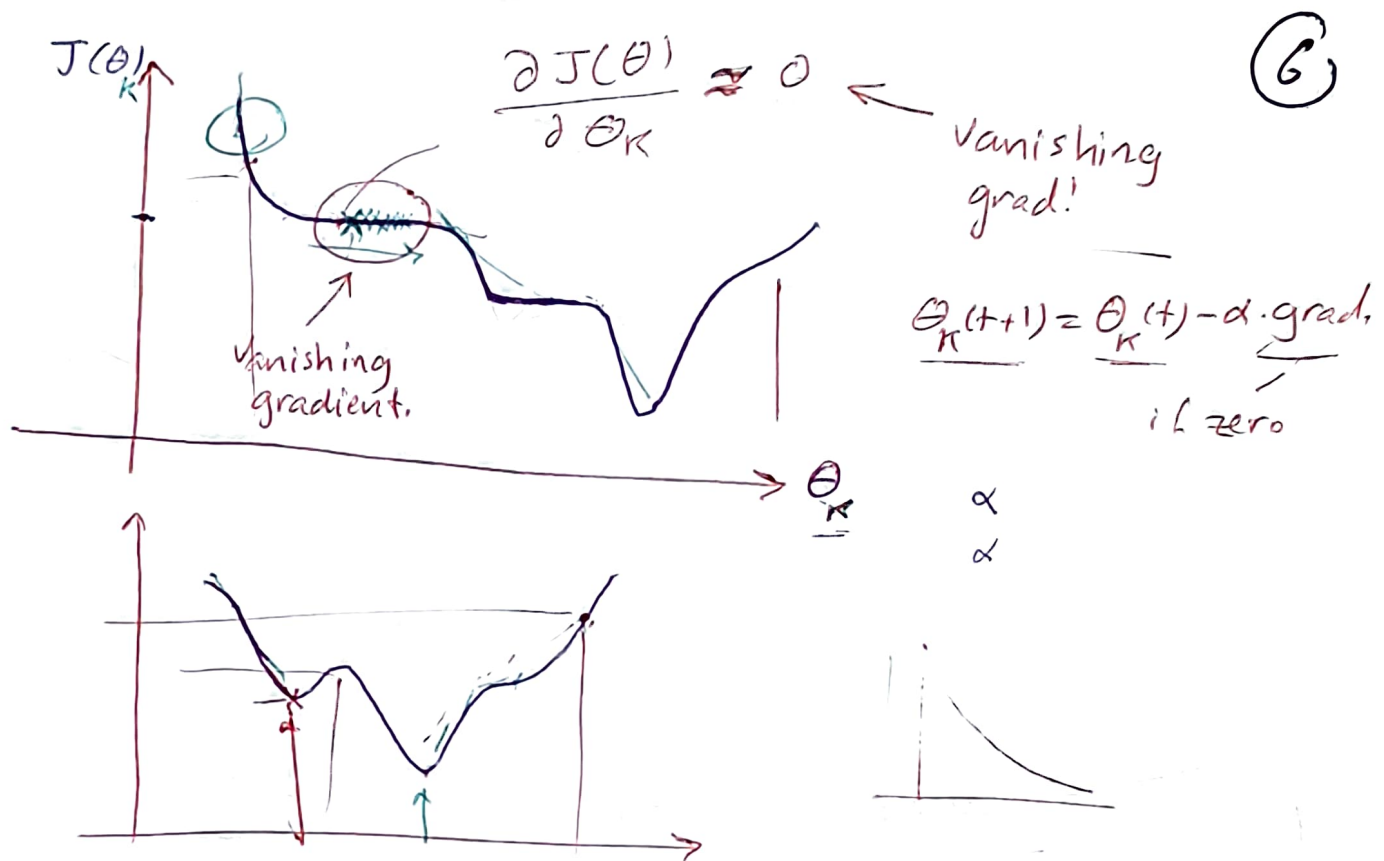 J(θ)
K
∂ J(θ)
∂ θ_K
≈ 0
6
Vanishing
grad!
Vanishing
gradient.
θ_K(t+1) = θ_K(t) - α · grad.
if zero
θ_K
α
α